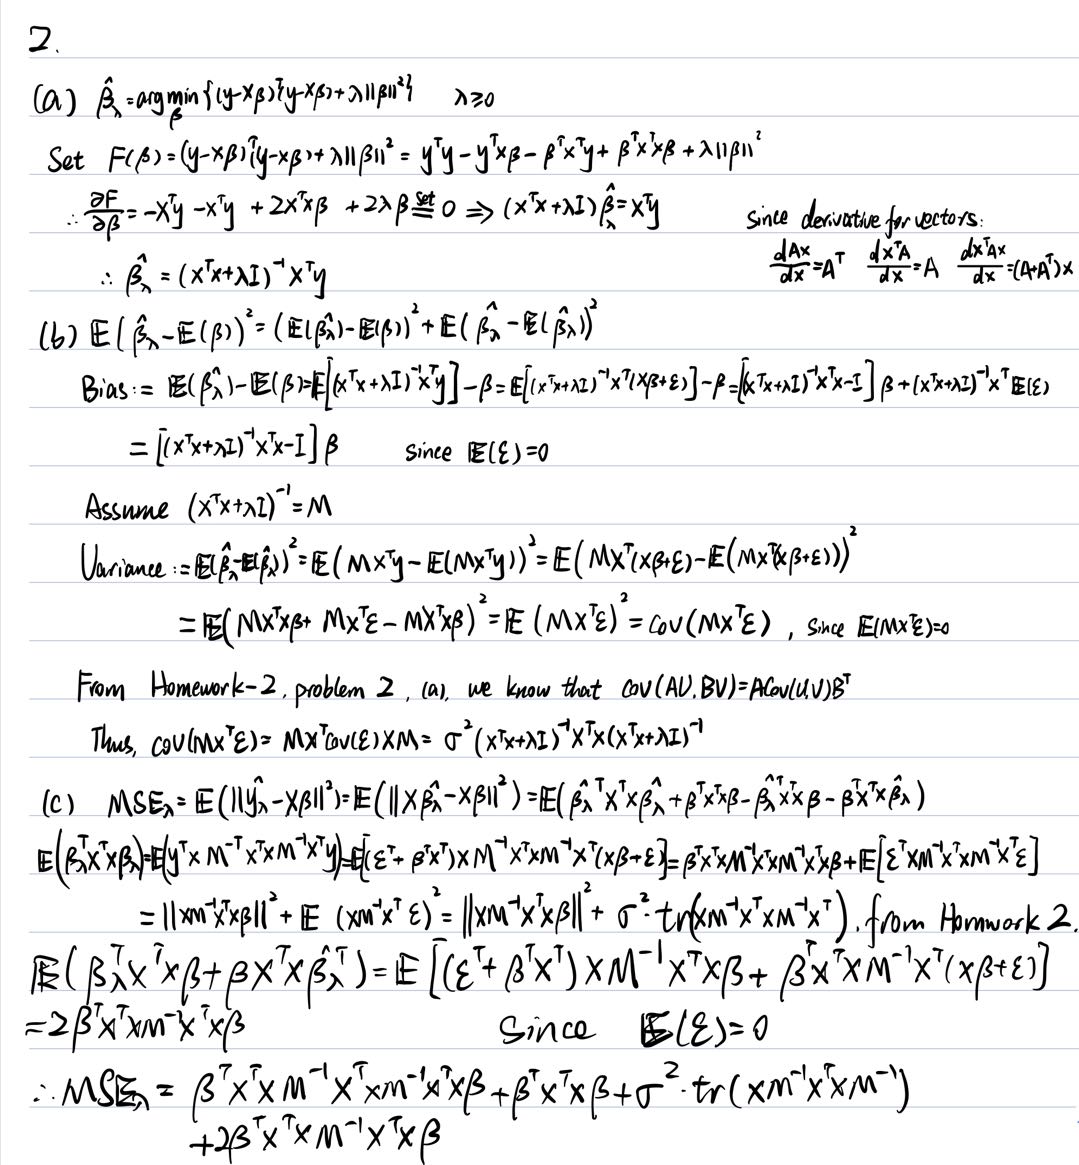 2.
(a) β̂_λ = argmin_β {(y-Xβ)ᵀ(y-Xβ)+λ||β||²} λ≥0
Set F(β)=(y-Xβ)ᵀ(y-Xβ)+λ||β||² = yᵀy-yᵀXβ-βᵀXᵀy+βᵀXᵀXβ+λ||β||²
∴ ∂F/∂β = -Xᵀy -Xᵀy + 2XᵀXβ + 2λβ ≝set 0 ⇒ (XᵀX+λI)β̂_λ=Xᵀy
since derivative for vectors:
dAx/dx=Aᵀ dxᵀA/dx=A dxᵀAx/dx=(A+Aᵀ)x
∴ β̂_λ = (XᵀX+λI)⁻¹Xᵀy
(b) E(β̂_λ-E(β))² = (E(β̂_λ)-E(β))²+E(β̂_λ-E(β̂_λ))²
Bias:= E(β̂_λ)-E(β)=E[(XᵀX+λI)⁻¹Xᵀy]-β=E[(XᵀX+λI)⁻¹Xᵀ(Xβ+ε)]-β=[(XᵀX+λI)⁻¹XᵀX-I]β+(XᵀX+λI)⁻¹XᵀE(ε)
= [(XᵀX+λI)⁻¹XᵀX-I]β since E(ε)=0
Assume (XᵀX+λI)⁻¹=M
Variance:=E(β̂_λ-E(β̂_λ))²=E(MXᵀy-E(MXᵀy))²=E(MXᵀ(Xβ+ε)-E(MXᵀ(Xβ+ε)))²
=E(MXᵀXβ+MXᵀε-MXᵀXβ)²=E(MXᵀε)²=Cov(MXᵀε), since E(MXᵀε)=0
From Homework-2, problem 2, (a), we know that cov(AU,BV)=ACov(U,V)Bᵀ
Thus, cov(MXᵀε)=MXᵀcov(ε)XM=σ²(XᵀX+λI)⁻¹XᵀX(XᵀX+λI)⁻¹
(c) MSE_λ=E(||ŷ_λ-Xβ||²)=E(||Xβ̂_λ-Xβ||²)=E(β̂_λᵀXᵀXβ̂_λ+βᵀXᵀXβ-β̂_λᵀXᵀXβ-βᵀXᵀXβ̂_λ)
E(β̂_λᵀXᵀXβ̂_λ)=E(yᵀXM⁻ᵀXᵀXM⁻¹Xᵀy)=E[(εᵀ+βᵀXᵀ)XM⁻¹XᵀXM⁻¹Xᵀ(Xβ+ε)]=βᵀXᵀXM⁻¹XᵀXM⁻¹XᵀXβ+E[εᵀXM⁻¹XᵀXM⁻¹Xᵀε]
=||XM⁻¹XᵀXβ||²+E(XM⁻¹Xᵀε)²=||XM⁻¹XᵀXβ||²+σ²·tr(XM⁻¹XᵀXM⁻¹Xᵀ), from Homwork 2.
E(β̂_λᵀXᵀXβ+βXᵀXβ̂_λᵀ)=E[(εᵀ+βᵀXᵀ)XM⁻¹XᵀXβ+βᵀXᵀXM⁻¹Xᵀ(Xβ+ε)]
=2βᵀXᵀXM⁻¹XᵀXβ since E(ε)=0
∴MSE_λ = βᵀXᵀXM⁻¹XᵀXM⁻¹XᵀXβ+βᵀXᵀXβ+σ²·tr(XM⁻¹XᵀXM⁻¹)
+2βᵀXᵀXM⁻¹XᵀXβ